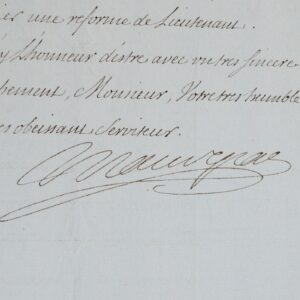 une reforme de Lieutenant.
L'honneur d'estre avec un tres sincere
Monsieur, Votre tres humble
obeissant Serviteur.